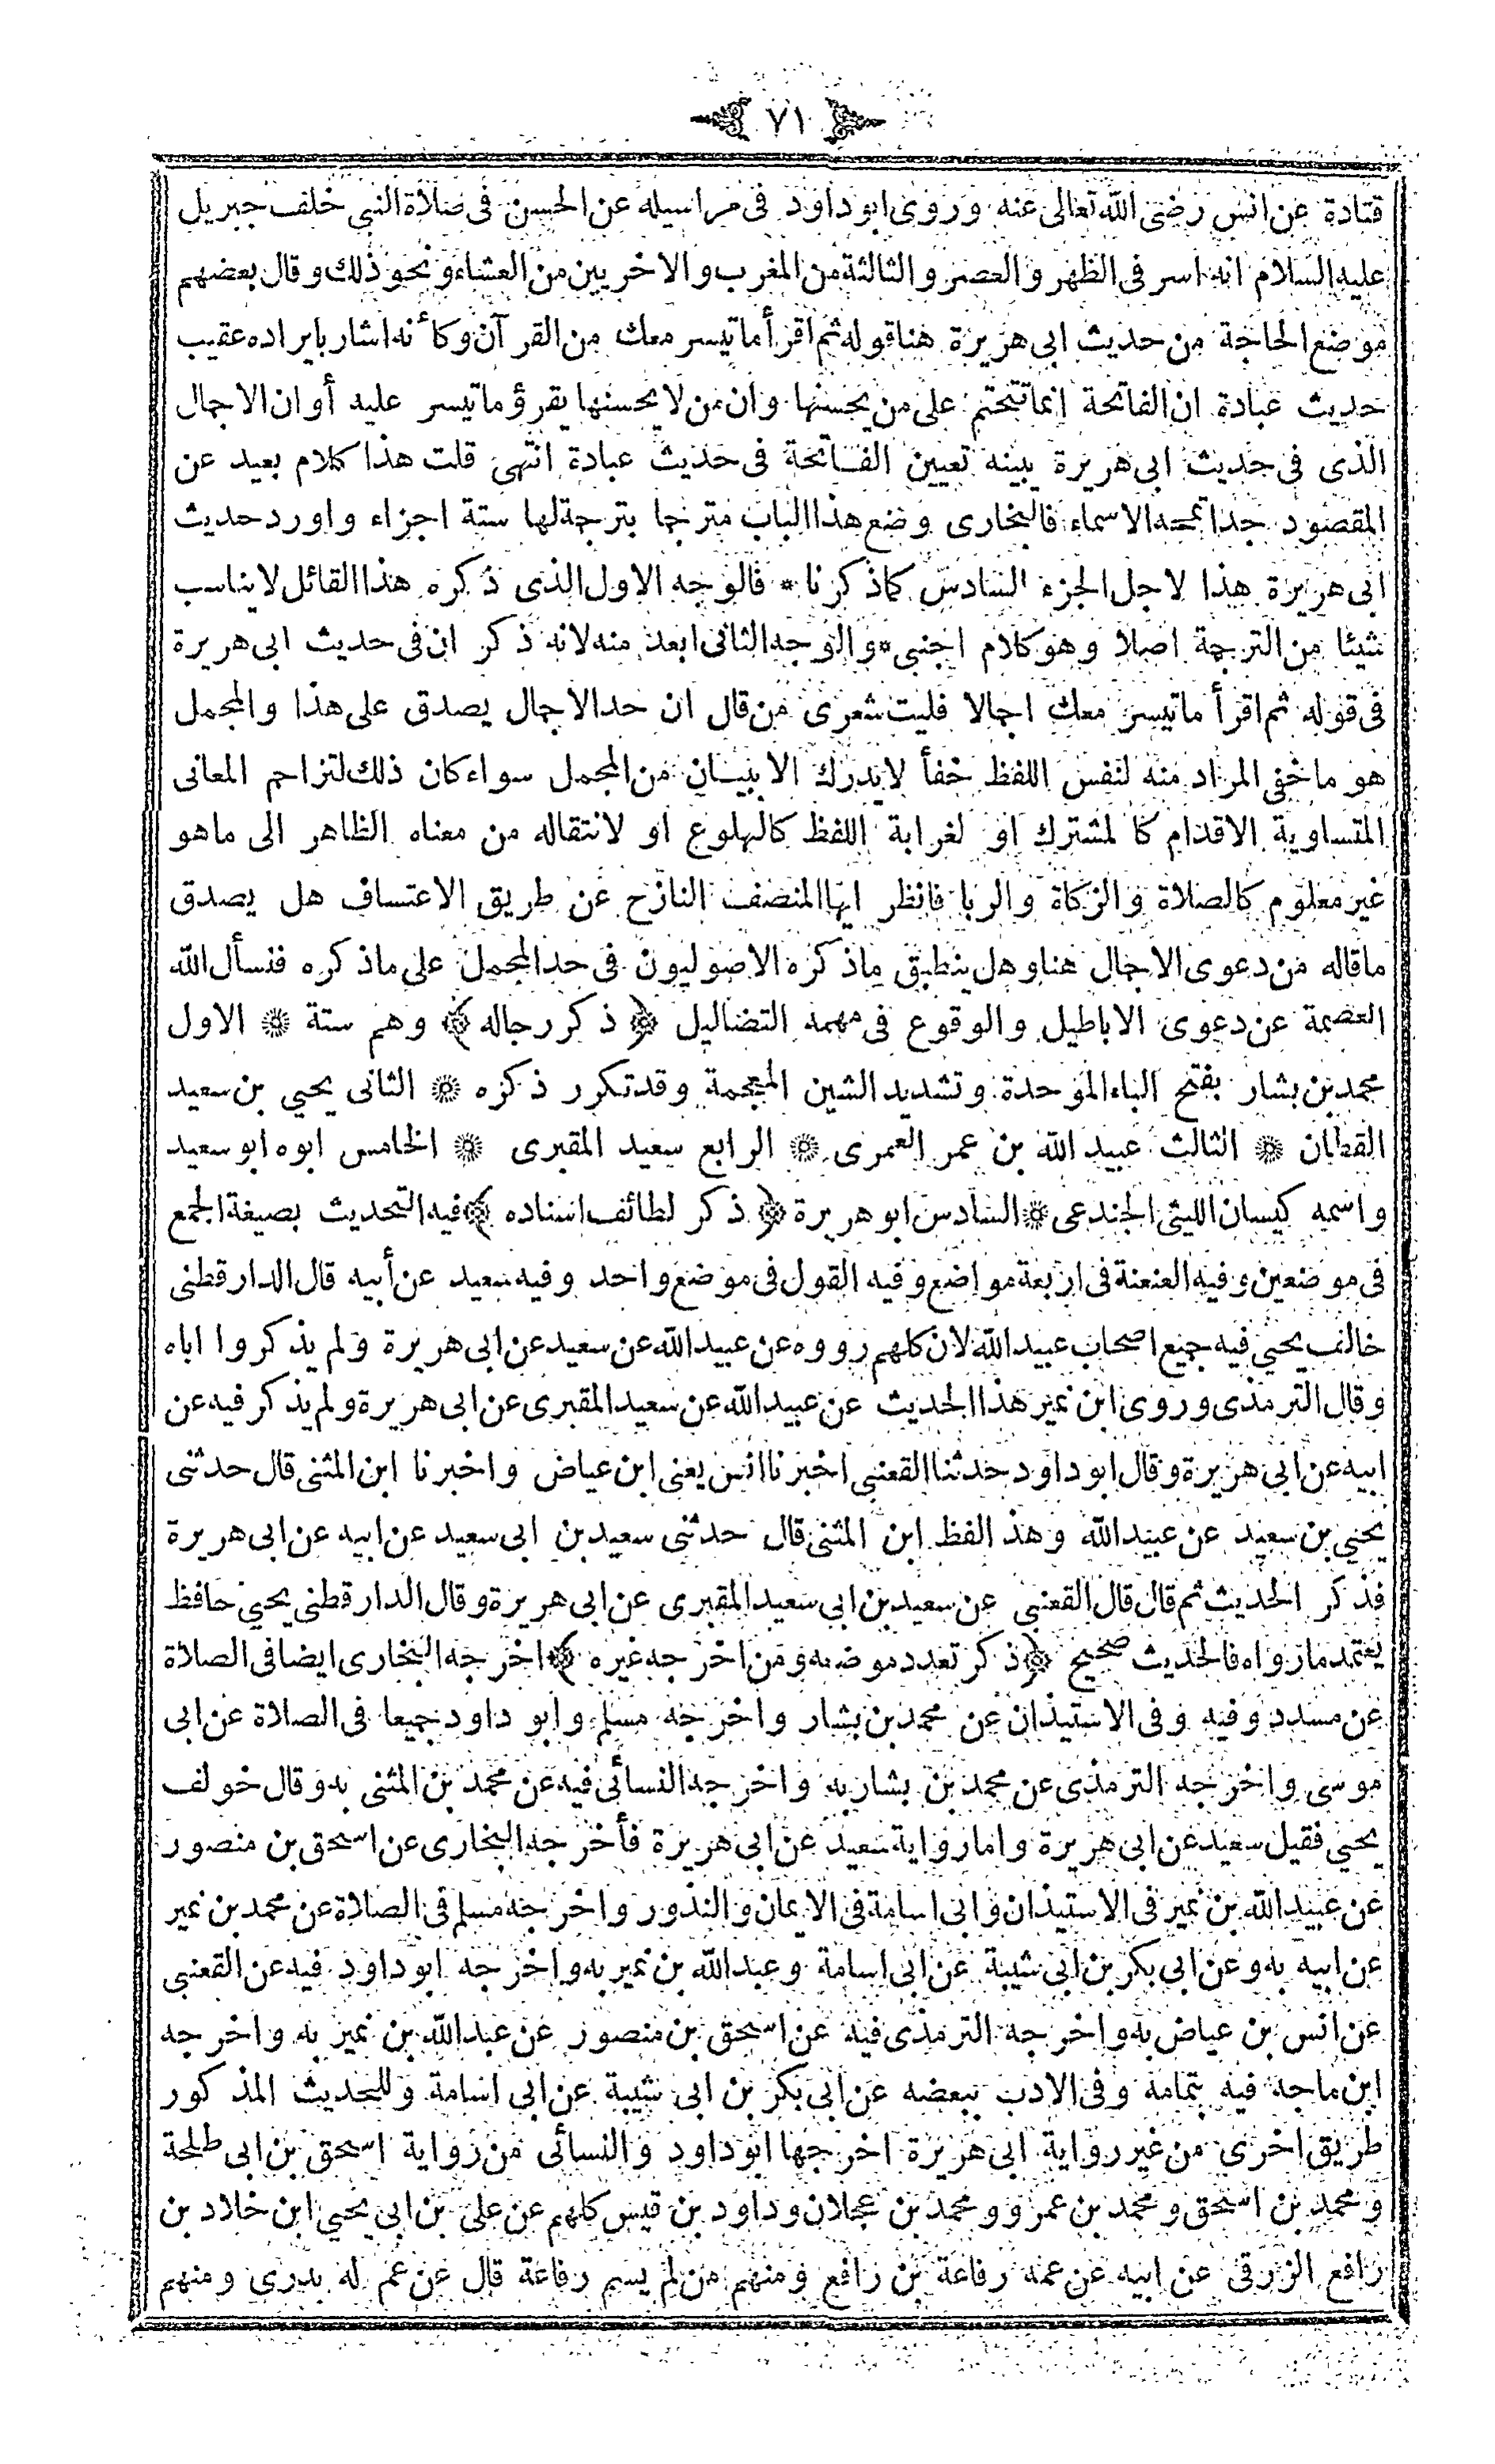 ٧١
قتادة عن انس رضى الله تعالى عنه وروى ابو داود فى مراسيله عن الحسن فى صلاة النبى خلف جبريل
عليه السلام انه اسر فى الظهر والعصر والثالثة من المغرب والاخريين من العشاء ونحو ذلك وقال بعضهم
موضع الحاجة من حديث ابى هريرة هنا قوله ثم اقرأ ما تيسر معك من القرآن وكأنه اشار بايراده عقيب
حديث عبادة ان الفاتحة انما تتحتم على من يحسنها وان من لا يحسنها يقرؤ ما تيسر عليه أو ان الاجمال
الذى فى حديث ابى هريرة يبينه تعيين الفاتحة فى حديث عبادة انتهى قلت هذا كلام بعيد عن
المقصود جدا تمجه الاسماء فالبخارى وضع هذا الباب مترجما بترجمة لها ستة اجزاء واورد حديث
ابى هريرة هذا لاجل الجزء السادس كما ذكرنا * فالوجه الاول الذى ذكره هذا القائل لا يناسب
شيئا من الترجمة اصلا وهو كلام اجنبى * والوجه الثانى ابعد منه لانه ذكر ان فى حديث ابى هريرة
فى قوله ثم اقرأ ما تيسر معك اجمالا فليت شعرى من قال ان حد الاجمال يصدق على هذا والمجمل
هو ما خفى المراد منه لنفس اللفظ خفأ لا يدرك الا ببيان من المجمل سواء كان ذلك لتزاحم المعانى
المتساوية الاقدام كالمشترك او لغرابة اللفظ كالهلوع او لانتقاله من معناه الظاهر الى ما هو
غير معلوم كالصلاة والزكاة والربا فانظر ايها المنصف النازح عن طريق الاعتساف هل يصدق
ما قاله من دعوى الاجمال هنا وهل ينطبق ما ذكره الاصوليون فى حد المجمل على ما ذكره فنسأل الله
العصمة عن دعوى الاباطيل والوقوع فى مهمه التضاليل ﴿ ذكر رجاله ﴾ وهم ستة * الاول
محمد بن بشار بفتح الباء الموحدة وتشديد الشين المعجمة وقد تكرر ذكره * الثانى يحيى بن سعيد
القطان * الثالث عبيد الله بن عمر العمرى * الرابع سعيد المقبرى * الخامس ابوه ابو سعيد
واسمه كيسان الليثى الجندعى * السادس ابو هريرة ﴿ ذكر لطائف اسناده ﴾ فيه التحديث بصيغة الجمع
فى موضعين وفيه العنعنة فى اربعة مواضع وفيه القول فى موضع واحد وفيه سعيد عن أبيه قال الدارقطنى
خالف يحيى فيه جميع اصحاب عبيد الله لان كلهم رووه عن عبيد الله عن سعيد عن ابى هريرة ولم يذكروا اباه
وقال الترمذى وروى ابن نمير هذا الحديث عن عبيد الله عن سعيد المقبرى عن ابى هريرة ولم يذكر فيه عن
ابيه عن ابى هريرة وقال ابو داود حدثنا القعنبى اخبرنا انس يعنى ابن عياض واخبرنا ابن المثنى قال حدثنى
يحيى بن سعيد عن عبيد الله وهذ الفظ ابن المثنى قال حدثنى سعيد بن ابى سعيد عن ابيه عن ابى هريرة
فذكر الحديث ثم قال قال القعنبى عن سعيد بن ابى سعيد المقبرى عن ابى هريرة وقال الدارقطنى يحيى حافظ
يعتمد مارواه فالحديث صحيح ﴿ ذكر تعدد موضعه ومن اخرجه غيره ﴾ اخرجه البخارى ايضا فى الصلاة
عن مسدد وفيه وفى الاستيذان عن محمد بن بشار واخرجه مسلم وابو داود جميعا فى الصلاة عن ابى
موسى واخرجه الترمذى عن محمد بن بشار به واخرجه النسائى فيه عن محمد بن المثنى به وقال خولف
يحيى فقيل سعيد عن ابى هريرة واما رواية سعيد عن ابى هريرة فأخرجه البخارى عن اسحق بن منصور
عن عبيد الله بن نمير فى الاستيذان وابى اسامة فى الايمان والنذور واخرجه مسلم فى الصلاة عن محمد بن نمير
عن ابيه به وعن ابى بكر بن ابى شيبة عن ابى اسامة وعبد الله بن نمير به واخرجه ابو داود فيه عن القعنبى
عن انس بن عياض به واخرجه الترمذى فيه عن اسحق بن منصور عن عبد الله بن نمير به واخرجه
ابن ماجه فيه بتمامه وفى الادب ببعضه عن ابى بكر بن ابى شيبة عن ابى اسامة وللحديث المذكور
طريق اخرى من غير رواية ابى هريرة اخرجها ابو داود والنسائى من رواية اسحق بن ابى طلحة
ومحمد بن اسحق ومحمد بن عمرو ومحمد بن عجلان وداود بن قيس كلهم عن على بن ابى يحيى ابن خلاد بن
رافع الزرقى عن ابيه عن عمه رفاعة بن رافع ومنهم من لم يسم رفاعة قال عن عم له بدرى ومنهم